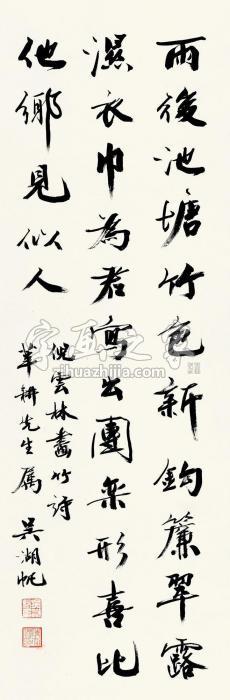 雨後池塘竹色新鈎簾翠露
濕衣巾為君寫出團栾形喜比
他鄉見似人
倪雲林畫竹詩
先生屬 吳湖帆
字画之家
www.zihuazhijia.com